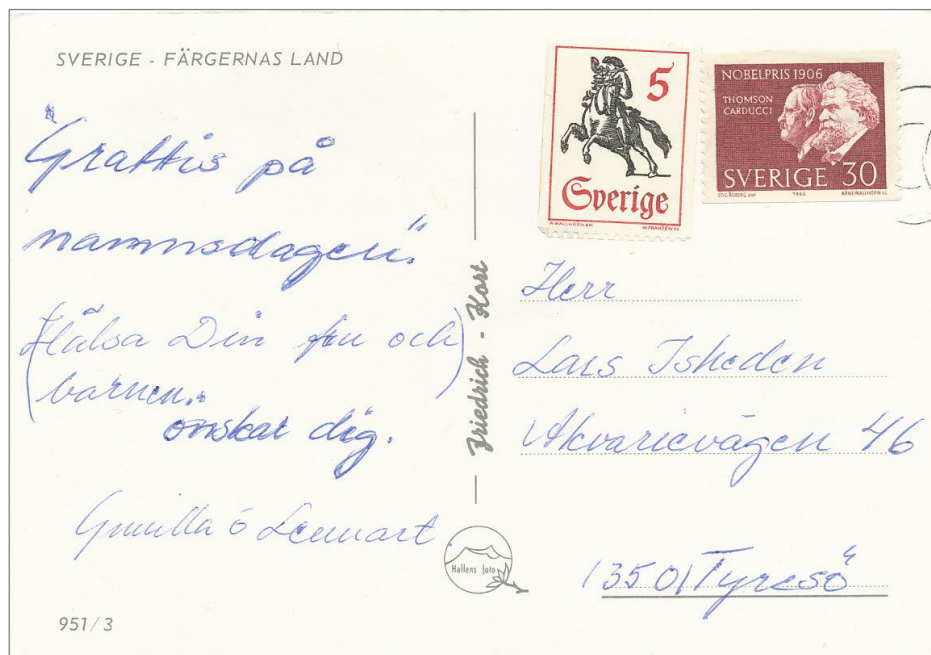 SVERIGE - FÄRGERNAS LAND
"Grattis på
namnsdagen".
(Hälsa Din fru och
barnen.)
önskar dig.
Gunilla ó Lennart.
951/3
Friedrich - Kort
Hallens foto
5
Sverige
NOBELPRIS 1906
THOMSON
CARDUCCI
SVERIGE 30
1966
Herr
Lars Isheden
Akvarievägen 46
13501 Tyresö